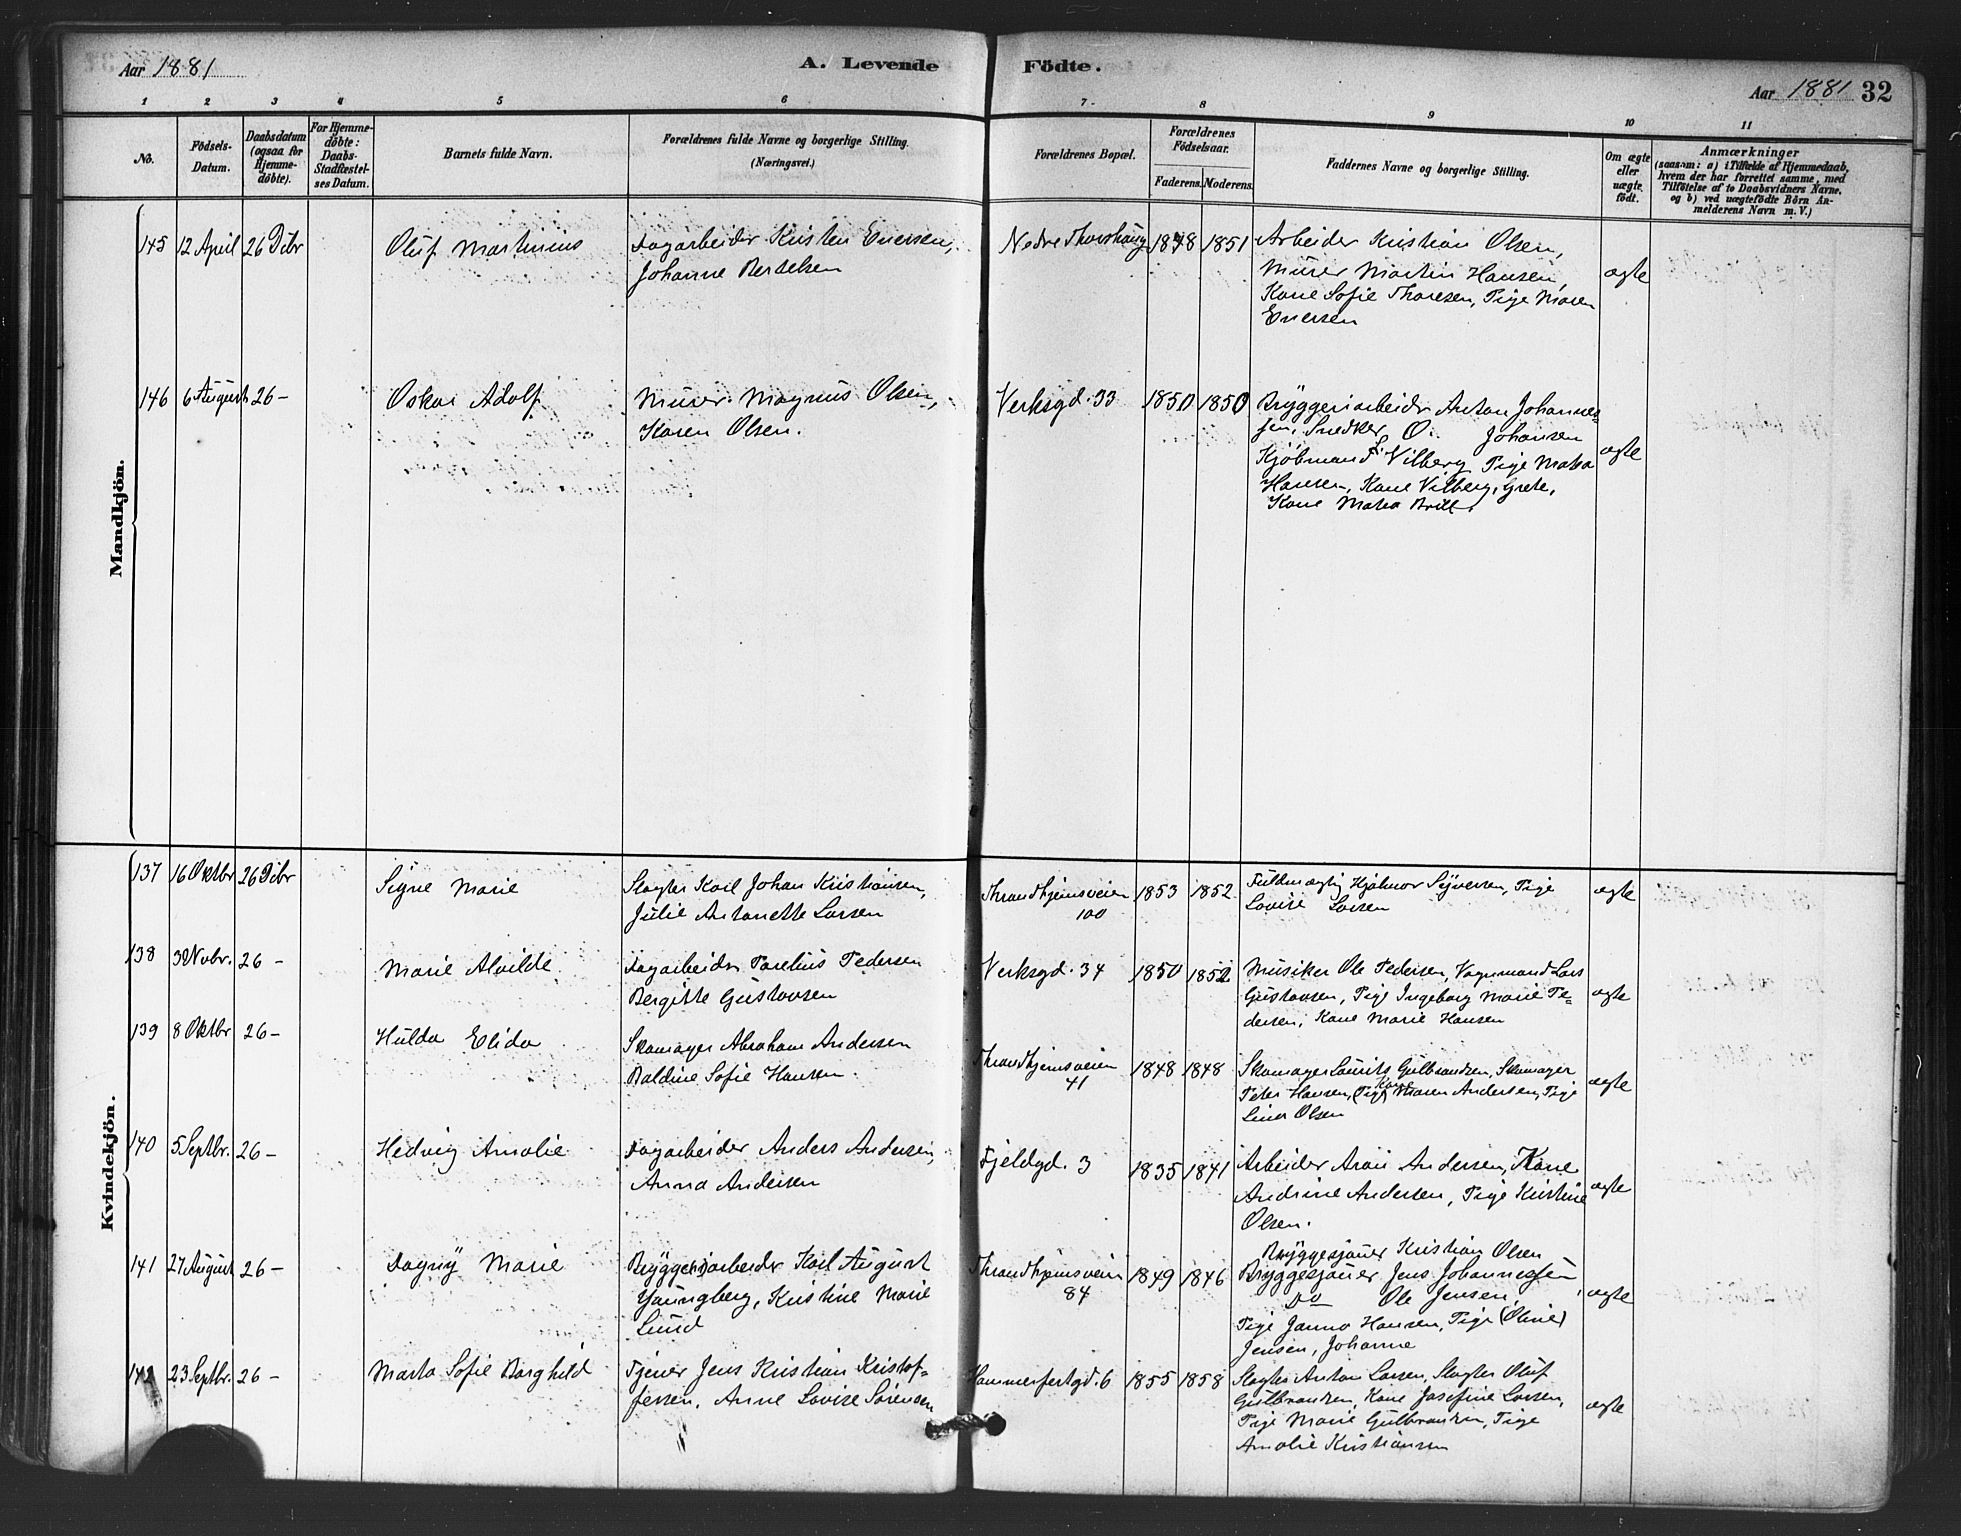 Aar 1881
A. Levende Födte.
Aar 1881 32
1 2 3 4 5 6 7 8 9 10 11
No.
Födsels-
Datum.
Daabsdatum
(ogsaa for
Hjemme-
döbte).
For Hjemme-
döbte:
Daabs-
Stadfæstel-
ses Datum.
Barnets fulde Navn.
Forældrenes fulde Navne og borgerlige Stilling.
(Næringsvei.)
Forældrenes Bopæl.
Forældrenes
Födselsaar.
Faderens. Moderens.
Faddernes Navne og borgerlige Stilling.
Om ægte
eller
uægte
födt.
Anmærkninger
(saasom: a) i Tilfælde af Hjemmedaab,
hvem der har forrettet samme, med
Tilföielse af to Daabsvidners Navne,
og b) ved uægtefödte Börn An-
melderens Navn m. V.)
Mandkjön.
145 12 April 26 Dibr
Oluf Martinius
Dagarbeider Kristen Evensen,
Johanne Bertelsen
Nedre Thorshaug 1848 1851
Arbeider Kristian Olsen,
Murer Martin Hansen,
Kone Sofie Thoresen, Pige Maren
Evensen
ægte
146 6 August 26 –
Oskar Adolf
Murer Magnus Olsen,
Karen Olsen.
Verksgd. 33 1850 1850
Bryggeriarbeider Anton Johannes-
sen, Snedker O. Johansen
Kjöbmand L. Vilberg Pige Mathea
Hansen, Kone Vilberg, Grete,
Kone Mathea Brill
ægte
Kvindekjön.
137 16 Oktbr 26 Dibr
Signe Marie
Slagter Karl Johan Kristiansen,
Julie Antonette Larsen
Thrandhjemsveien
100
1853 1852
Fuldmægtig Hjalmar Syversen, Pige
Lovise Larsen
ægte
138 3 Novbr. 26 –
Marie Alvilde
Dagarbeider Torelius Pedersen
Bergitte Gustavsen
Verksgd. 34 1850 1852
Musiker Ole Pedersen, Vognmand Lars
Gustavsen, Pige Ingeborg Marie Pe-
dersen, Kone Marie Hansen
ægte
139 8 Oktbr 26 –
Hulda Elida
Skomager Abraham Andersen
Baldine Sofie Hansen.
Thrandhjemsveien
41
1848 1848
Skomager Laurits Gulbrandsen, Skomager
Peter Hansen, (Pige) Kone Maren Andersen, Pige
Lina Olsen
ægte
140 5 Septbr. 26 –
Hedvig Amalie
Dagarbeider Anders Andersen,
Anna Andersen
Fjeldgd. 3 1835 1841
Arbeider Andersen, Kone
Andrine Andersen, Pige Kristine
Olsen.
ægte
141 27 August 26 –
Dagny Marie
Bryggeriarbeider Karl August
Youngberg, Kristine Marie
Lund
Thrandhjemsveien
84
1849 1846
Bryggesjauer Kristian Olsen
Bryggesjauer Jens Johannessen,
Do Ole Jensen,
Pige Janna Hansen, Pige (Oline)
Jensen, Johanne
ægte
142 23 Septbr. 26 –
Marta Sofie Borghild
Tjener Jens Kristian Kristof-
fersen, Anne Lovise Sörensen
Hammerfestgd. 6 1855 1858
Slagter Anton Larsen, Slagter Oluf
Gulbrandsen, Kone Josefine Larsen,
Pige Marie Gulbrandsen, Pige
Amalie Kristiansen
ægte